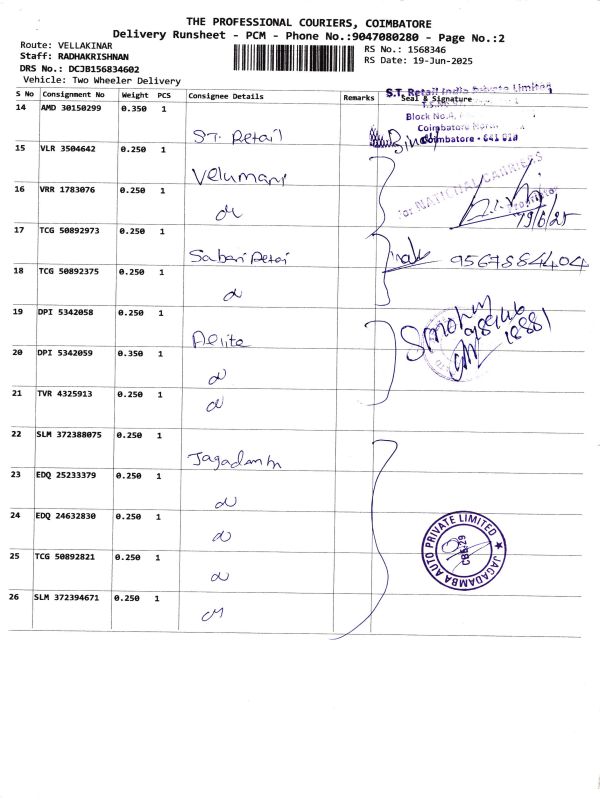 THE PROFESSIONAL COURIERS, COIMBATORE
Delivery Runsheet - PCM - Phone No.:9047080280 - Page No.:2
Route: VELLAKINAR
Staff: RADHAKRISHNAN
DRS No.: DCJB156834602
Vehicle: Two Wheeler Delivery
RS No.: 1568346
RS Date: 19-Jun-2025
S No Consignment No Weight PCS Consignee Details Remarks Seal & Signature
S.T. Retail India Private Limited
14 AMD 30150299 0.350 1 S.T. Retail
Block No.4,
Coimbatore North
Coimbatore - 641 018
15 VLR 3504642 0.250 1 Velumani
for NATIONAL CARRIERS
16 VRR 1783076 0.250 1
Proprietor
19/6/25
17 TCG 50892973 0.250 1 Sabari Retai
9567884404
18 TCG 50892375 0.250 1
19 DPI 5342058 0.250 1
20 DPI 5342059 0.350 1
21 TVR 4325913 0.250 1
22 SLM 372388075 0.250 1 Jagadamba
23 EDQ 25233379 0.250 1
24 EDQ 24632830 0.250 1
25 TCG 50892821 0.250 1
JAGADAMBA AUTO PRIVATE LIMITED
CBE-29
26 SLM 372394671 0.250 1